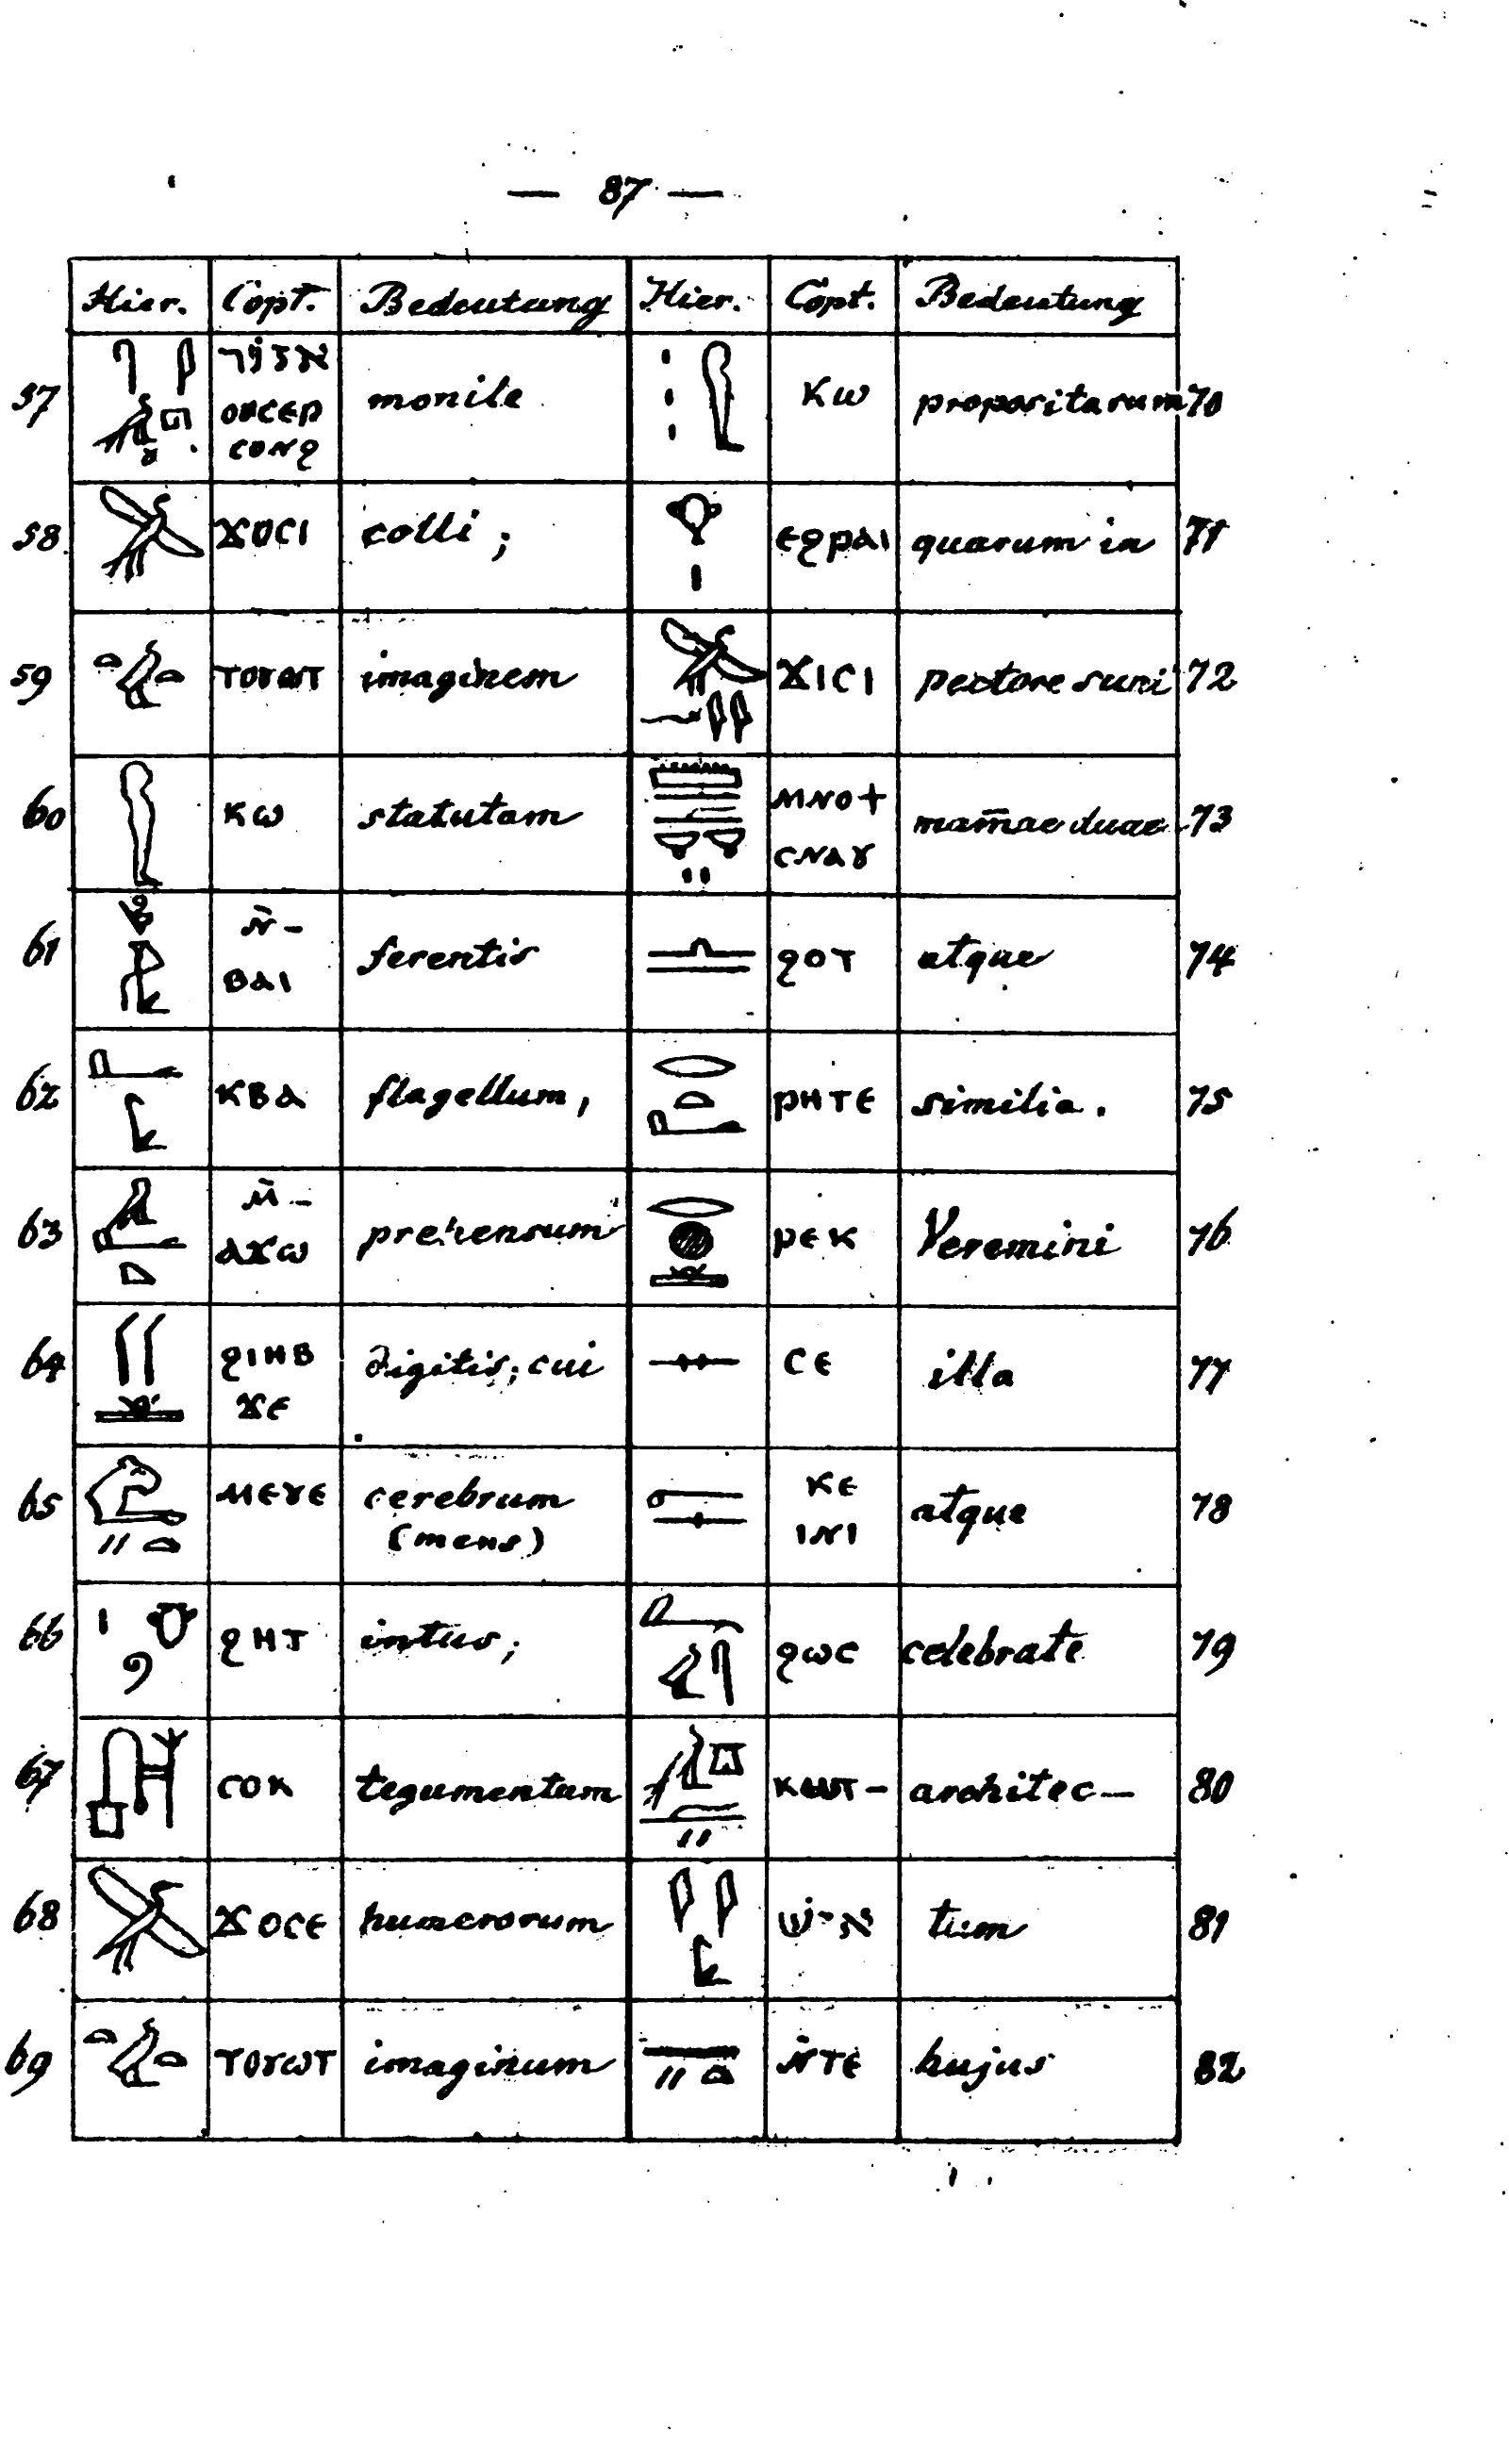 — 87 —
Hier. Copt. Bedeutung Hier. Copt. Bedeutung
57 אזור monile ⲕⲱ propositarum 70
ⲥⲟⲛϩ
58 ϫⲟⲥⲓ colli ; ⲉϩⲣⲁⲓ quarum in 71
59 ⲧⲟⲩⲱⲧ imaginem ϫⲓⲥⲓ pectore sunt 72
60 ⲕⲱ statutam ⲙⲛⲟϯ mam̄ae duae 73
ⲥⲛⲁⲩ
61 ⲛ̄- ferentis ϩⲟⲧ atque 74
ⲃⲁⲓ
62 ⲕⲃⲁ flagellum, ⲣⲏⲧⲉ similia. 75
63 ⲙ̄- prehensum ⲣⲉⲕ Veremini 76
ⲁϫⲱ
64 ϩⲓⲏⲃ digitis; cui ⲥⲉ illa 77
ϫⲉ
65 ⲙⲉⲩⲉ cerebrum ⲕⲉ atque 78
(mens) ⲓⲛⲓ
66 ϩⲏⲧ intus; ϩⲱⲥ celebrate 79
67 ⲥⲟⲕ tegumentum ⲕⲱⲧ- architec- 80
68 ϫⲟⲥⲉ humerorum איש tum 81
69 ⲧⲟⲩⲱⲧ imaginum ⲛ̄ⲧⲉ hujus 82